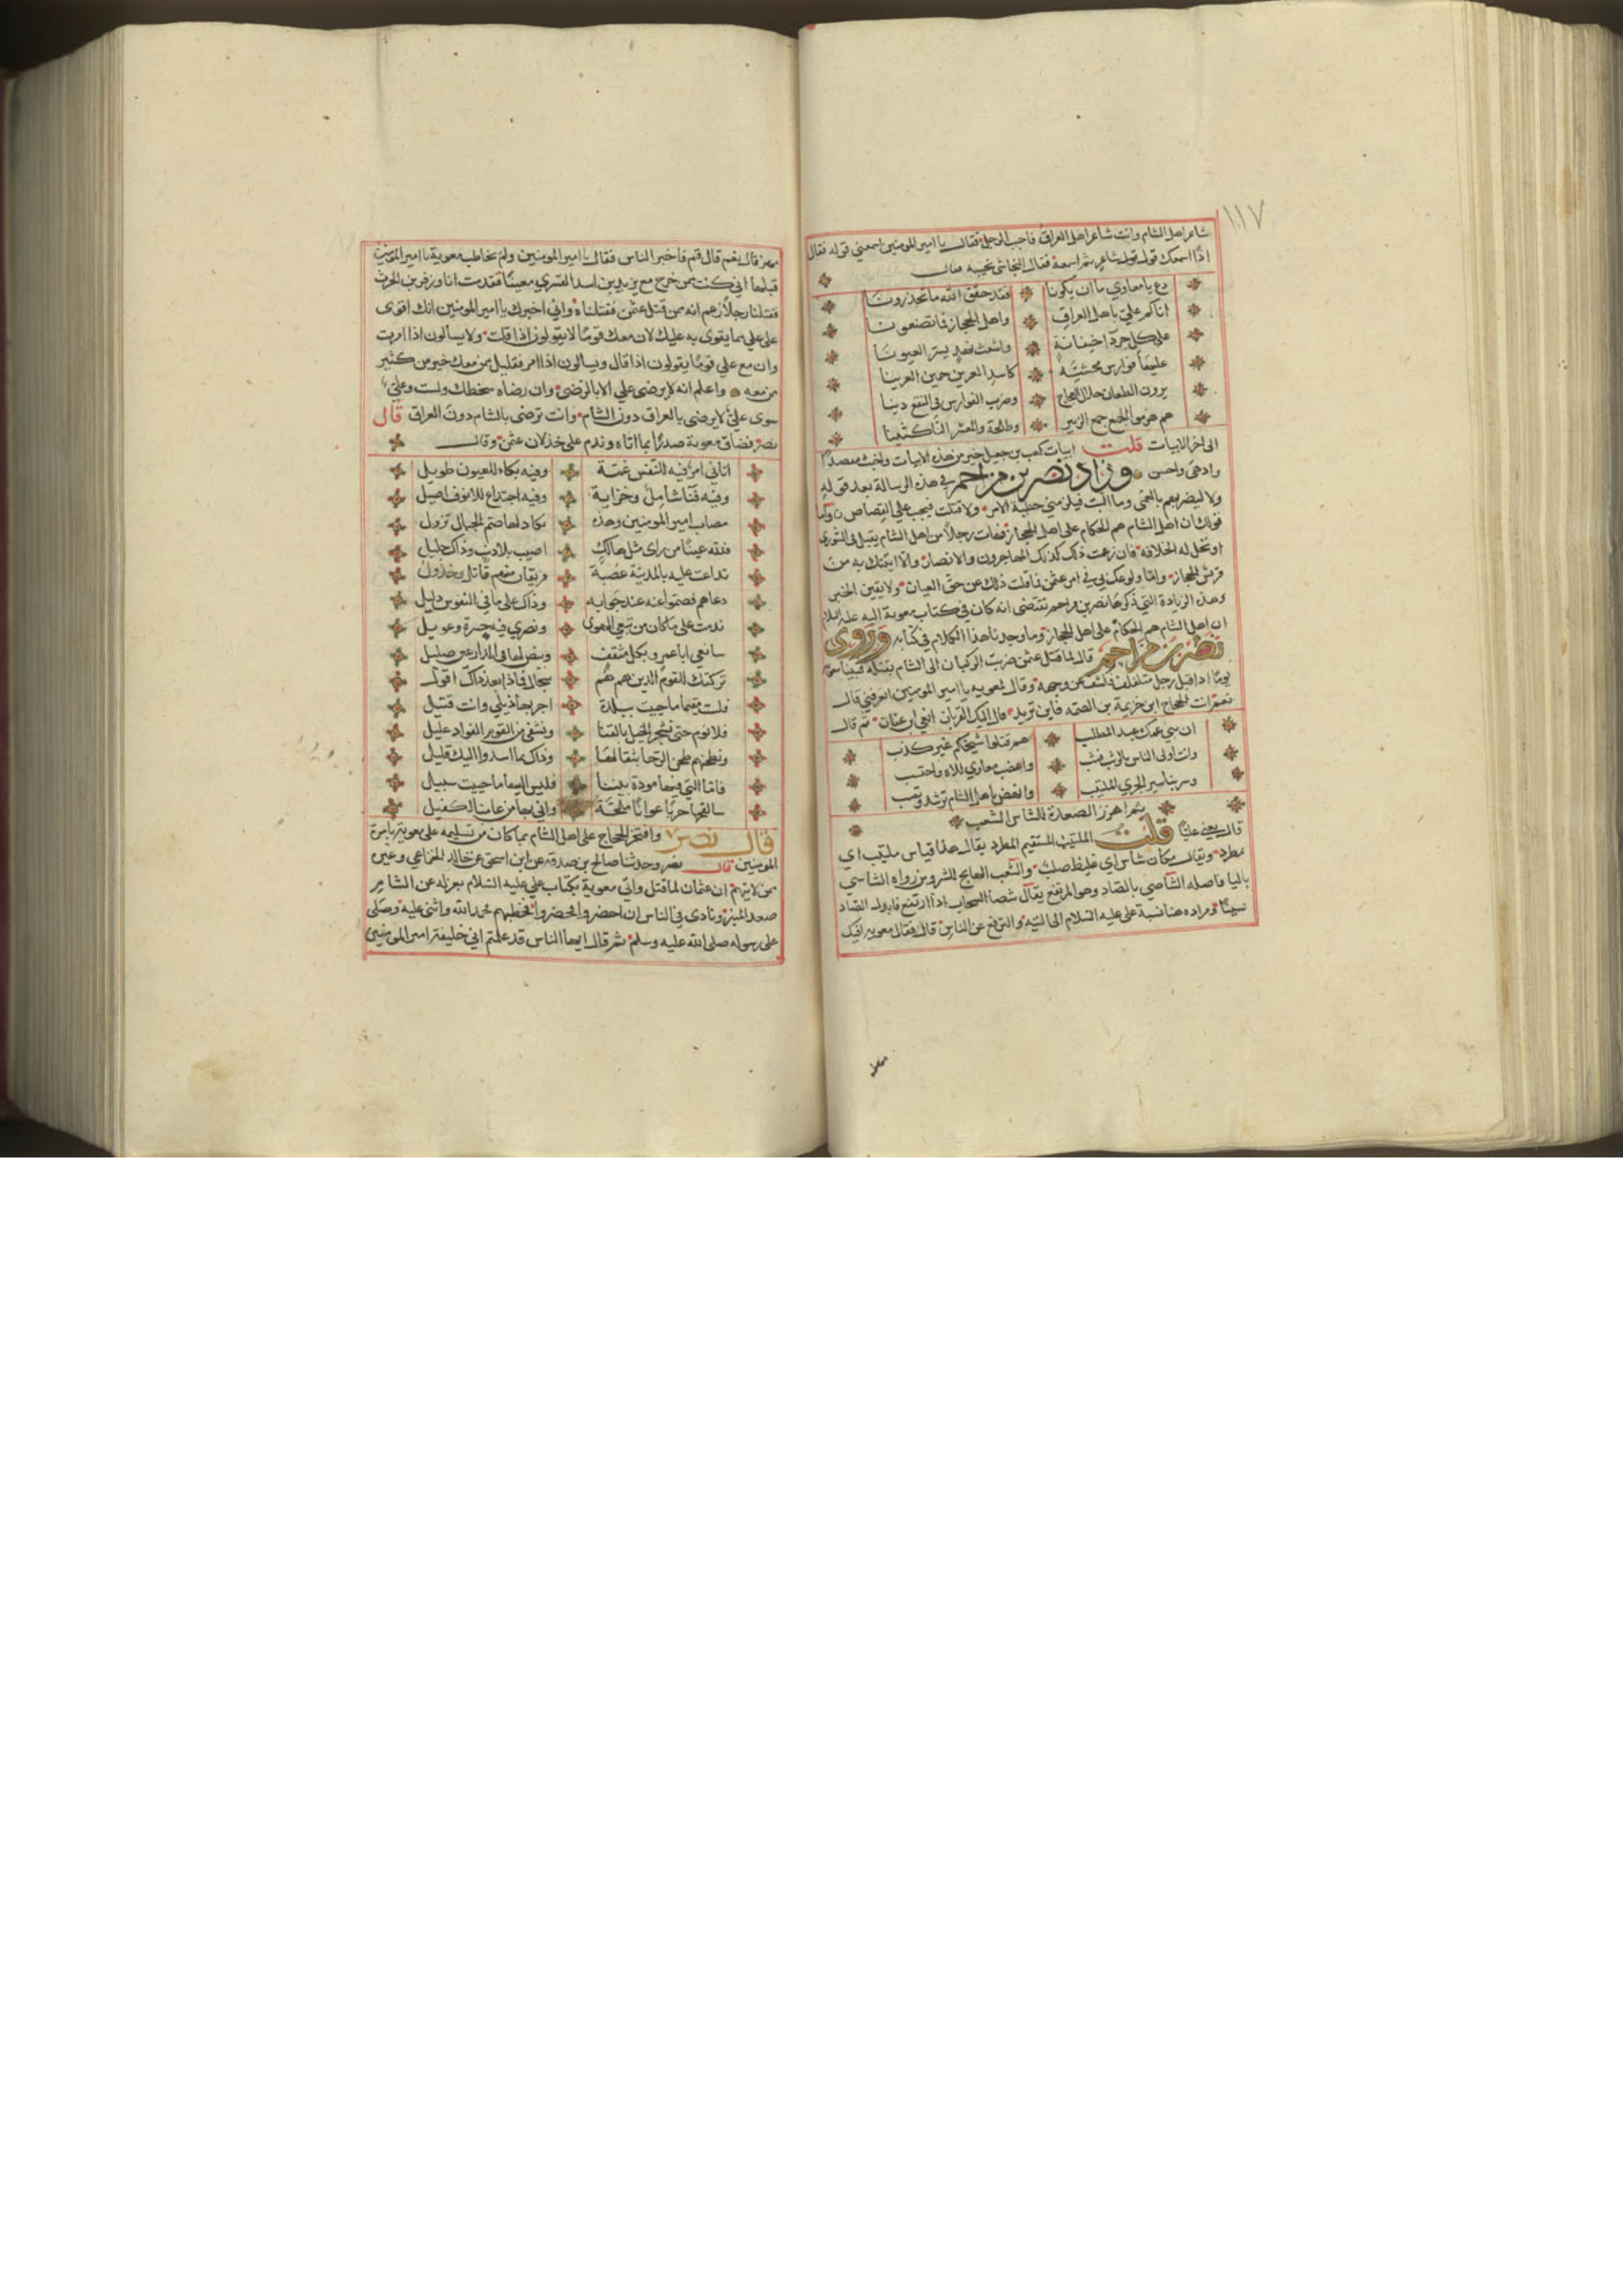 ١١٧
شاعر اهل الشام وانت شاعر اهل العراق فاجب الرجل فقال يا امير المومنين اسمعني قوله فقال
اذًا اسمعك قول شاعر ثم اسمعه فقال النجاشي يجيبه فقال
دع يا معاوي ما لن يكونا فقد حقق الله ما تحذرونا
اتاكم علي باهل العراق واهل الحجاز فما تصنعونا
على كل جردآ خيفانة واشعث نهد يسر العيونا
عليها فوارس مخشيّة كاسد العرين حمين العرينا
يرون الطعان خلال العجاج وضرب الفوارس في النقع دينا
هم هزموا الجمع جمع الزبير وطلحة والمعشر الناكثينا
الى اخر الابيات قلت ابيات كعب بن جعيل خير من هذه الابيات واخبث مقصدًا
وادهى واحسن وزاد نصر بن مزاحم في هذه الرسالة بعد قوله
ولا ليضربهم بالعمى وما البت فيلزمني خطيئة الامر ولا قتلت فيجب علي القصاص واما
قولك ان اهل الشام هم الحكام على اهل الحجاز فهات رجلاً من اهل الشام يقبل في الشورى
او تحل له الخلافة فان زعمت ذلك كذبك المهاجرون والانصار والا اتيتك به من
قريش الحجاز واما ولوعك بي في امر عثمن فما قلت ذلك عن حق العيان ولا يقين الخبر
وهذه الزيادة التي ذكرها نصر بن مزاحم تقتضي انه كان في كتاب معوية اليه عليه السلام
ان اهل الشام هم الحكام على اهل الحجاز وما وجدنا هذا الكلام في كتابه وروى
نصر بن مزاحم قال لما قتل عثمن ضربت الركبان الى الشام بقتله فبينا معوية
يومًا اذ اقبل رجل متلفف فكشف عن وجهه وقال لمعوية يا امير المومنين اتعرفني قال
نعم انت الحجاج ابن خزيمة بن الصمه فاين تريد قال اليك القربان انعي ابن عفان ثم قال
ان بني عمك عبد المطلب هم قتلوا شيخكم غير كذب
وانت اولى الناس بالوثب فثب واغضب معاوي للاله واحتسب
وسر بنا سير الجري المتلئب وانهض باهل الشام ترشد وتصب
ثم اهزز الصعدة للشاس الشغب
قال يعني عليًا قلت المتلئب المستقيم المطرد يقال هذا قياس متلئب اي
مطرد ويقال مكان شاس اي غليظ صلب والشغب الهايج للشر ومن رواه الشاسي
باليا فاصله الشاصي بالصاد وهو المرتفع يقال شصا السحاب اذا ارتفع فابدل الصاد
سينًا ومراده هنا نسبة علي عليه السلام الى التيه والترفع عن الناس قال فقال معويه افيك
مهز قال نعم قال قم فاخبر الناس فقال يا امير المومنين ولم يخاطب معوية يا امير المومنين
قبلها اني كنت فيمن خرج مع يزيد بن اسد القسري مغيثًا فقدمت انا وزفر بن الحرث
فقتلنا رجلاً زعم انه ممن قتل عثمن فقتلناه واني اخبرك يا امير المومنين انك اقوى
على علي بما يقوى به عليك لان معك قومًا لا يقولون اذا قلت ولا يسالون اذا امرت
وان مع علي قومًا يقولون اذا قال ويسالون اذا امر فقليل ممن معك خير من كثير
ممن معه واعلم انه لا يرضى علي الا بالرضى وان رضاه سخطك ولست وعلي
سوى علي لا يرضى بالعراق دون الشام وانت ترضى بالشام دون العراق قال
نصر فضاق معوية صدرًا بما اتاه وندم على خذلان عثمن وقال
اتاني امر فيه للنفس غمة وفيه بكاء للعيون طويل
وفيه فنا شامل وخزاية وفيه اجتداع للانوف اصيل
مصاب امير المومنين وهذه تكاد لها صم الجبال تزول
فلله عينًا من راى مثل هالك اصيب بلا ذنب وذاك جليل
تداعت عليه بالمدينة عصبة فريقان منهم قاتل وخذول
دعاهم فصموا عنه عند جوابه وذاك على ما في النفوس دليل
ندمت على ما كان من تبعي الهوى ونصري فيه حسرة وعويل
سانعي ابا عمرو بكل مثقف وبيض لها في الدارعين صليل
تركتك للقوم الذين هم هم شجاك فماذا بعد ذاك اقول
فلست مقيما ما حييت ببلدة اجر بها ذيلي وانت قتيل
فلا نوم حتى نشجر الخيل بالقنا ونشفي من القوم الغواة غليل
ونطحنهم طحن الرحا بثقالها وذاك بما اسدوا اليك قليل
فاما التي فيها مودة بيننا فليس اليها ما حييت سبيل
سالقحها حربًا عوانًا ملحّة واني بها من عامنا لكفيل
قال نصر وافتخر الحجاج على اهل الشام بما كان من تسليمه على معوية بامرة
المومنين قال نصر وحدثنا صالح بن صدقة عن ابن اسحق عن خالد الخزاعي وغيره
ممن لا يتهم ان عثمان لما قتل واتي معوية بكتاب علي عليه السلام بعزله عن الشام
صعد المنبر ونادى في الناس ان احضروا فحضروا فخطبهم فحمد الله واثنى عليه وصلى
على رسوله صلى الله عليه وسلم ثم قال ايها الناس قد علمتم اني خليفة امير المومنين